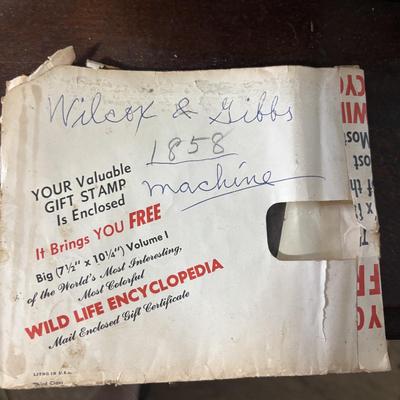 Wilcox & Gibbs
1858
machine
YOUR Valuable
GIFT STAMP
Is Enclosed
It Brings YOU FREE
Big (7½" x 10¼") Volume I
of the World's Most Interesting,
Most Colorful
WILD LIFE ENCYCLOPEDIA
Mail Enclosed Gift Certificate
LITHO IN U.S.A.
Third Class